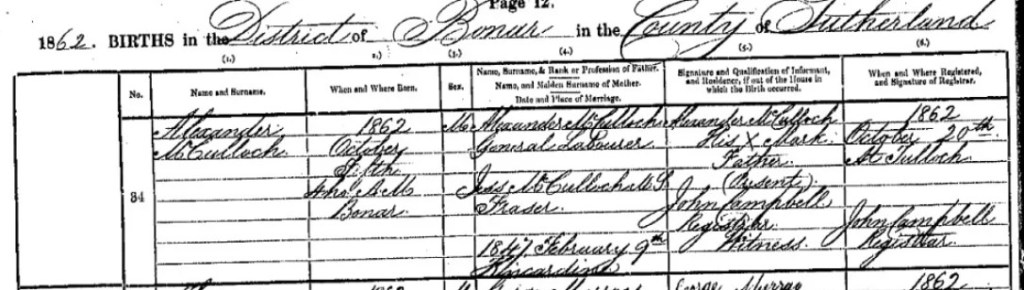 Page 12.
1862. BIRTHS in the District of Bonar in the County of Sutherland
(1.) (2.) (3.) (4.) (5.) (6.)
No.
Name and Surname.
When and Where Born.
Sex.
Name, Surname, & Rank or Profession of Father.
Name, and Maiden Surname of Mother.
Date and Place of Marriage.
Signature and Qualification of Informant,
and Residency, if out of the House in
which the Birth occurred.
When and Where Registered,
and Signature of Registrar.
84
Alexander
McCulloch
1862
October
Fifth
4h A.M.
Bonar
M
Alexander McCulloch
General Labourer
Jess McCulloch M.S.
Fraser.
1847 February 9th
Kincardine
Alexander McCulloch
His X Mark
Father
(Present)
John Campbell
Registrar
Witness.
1862
October 20th
John Campbell
Registrar
1862
George Murray
1862